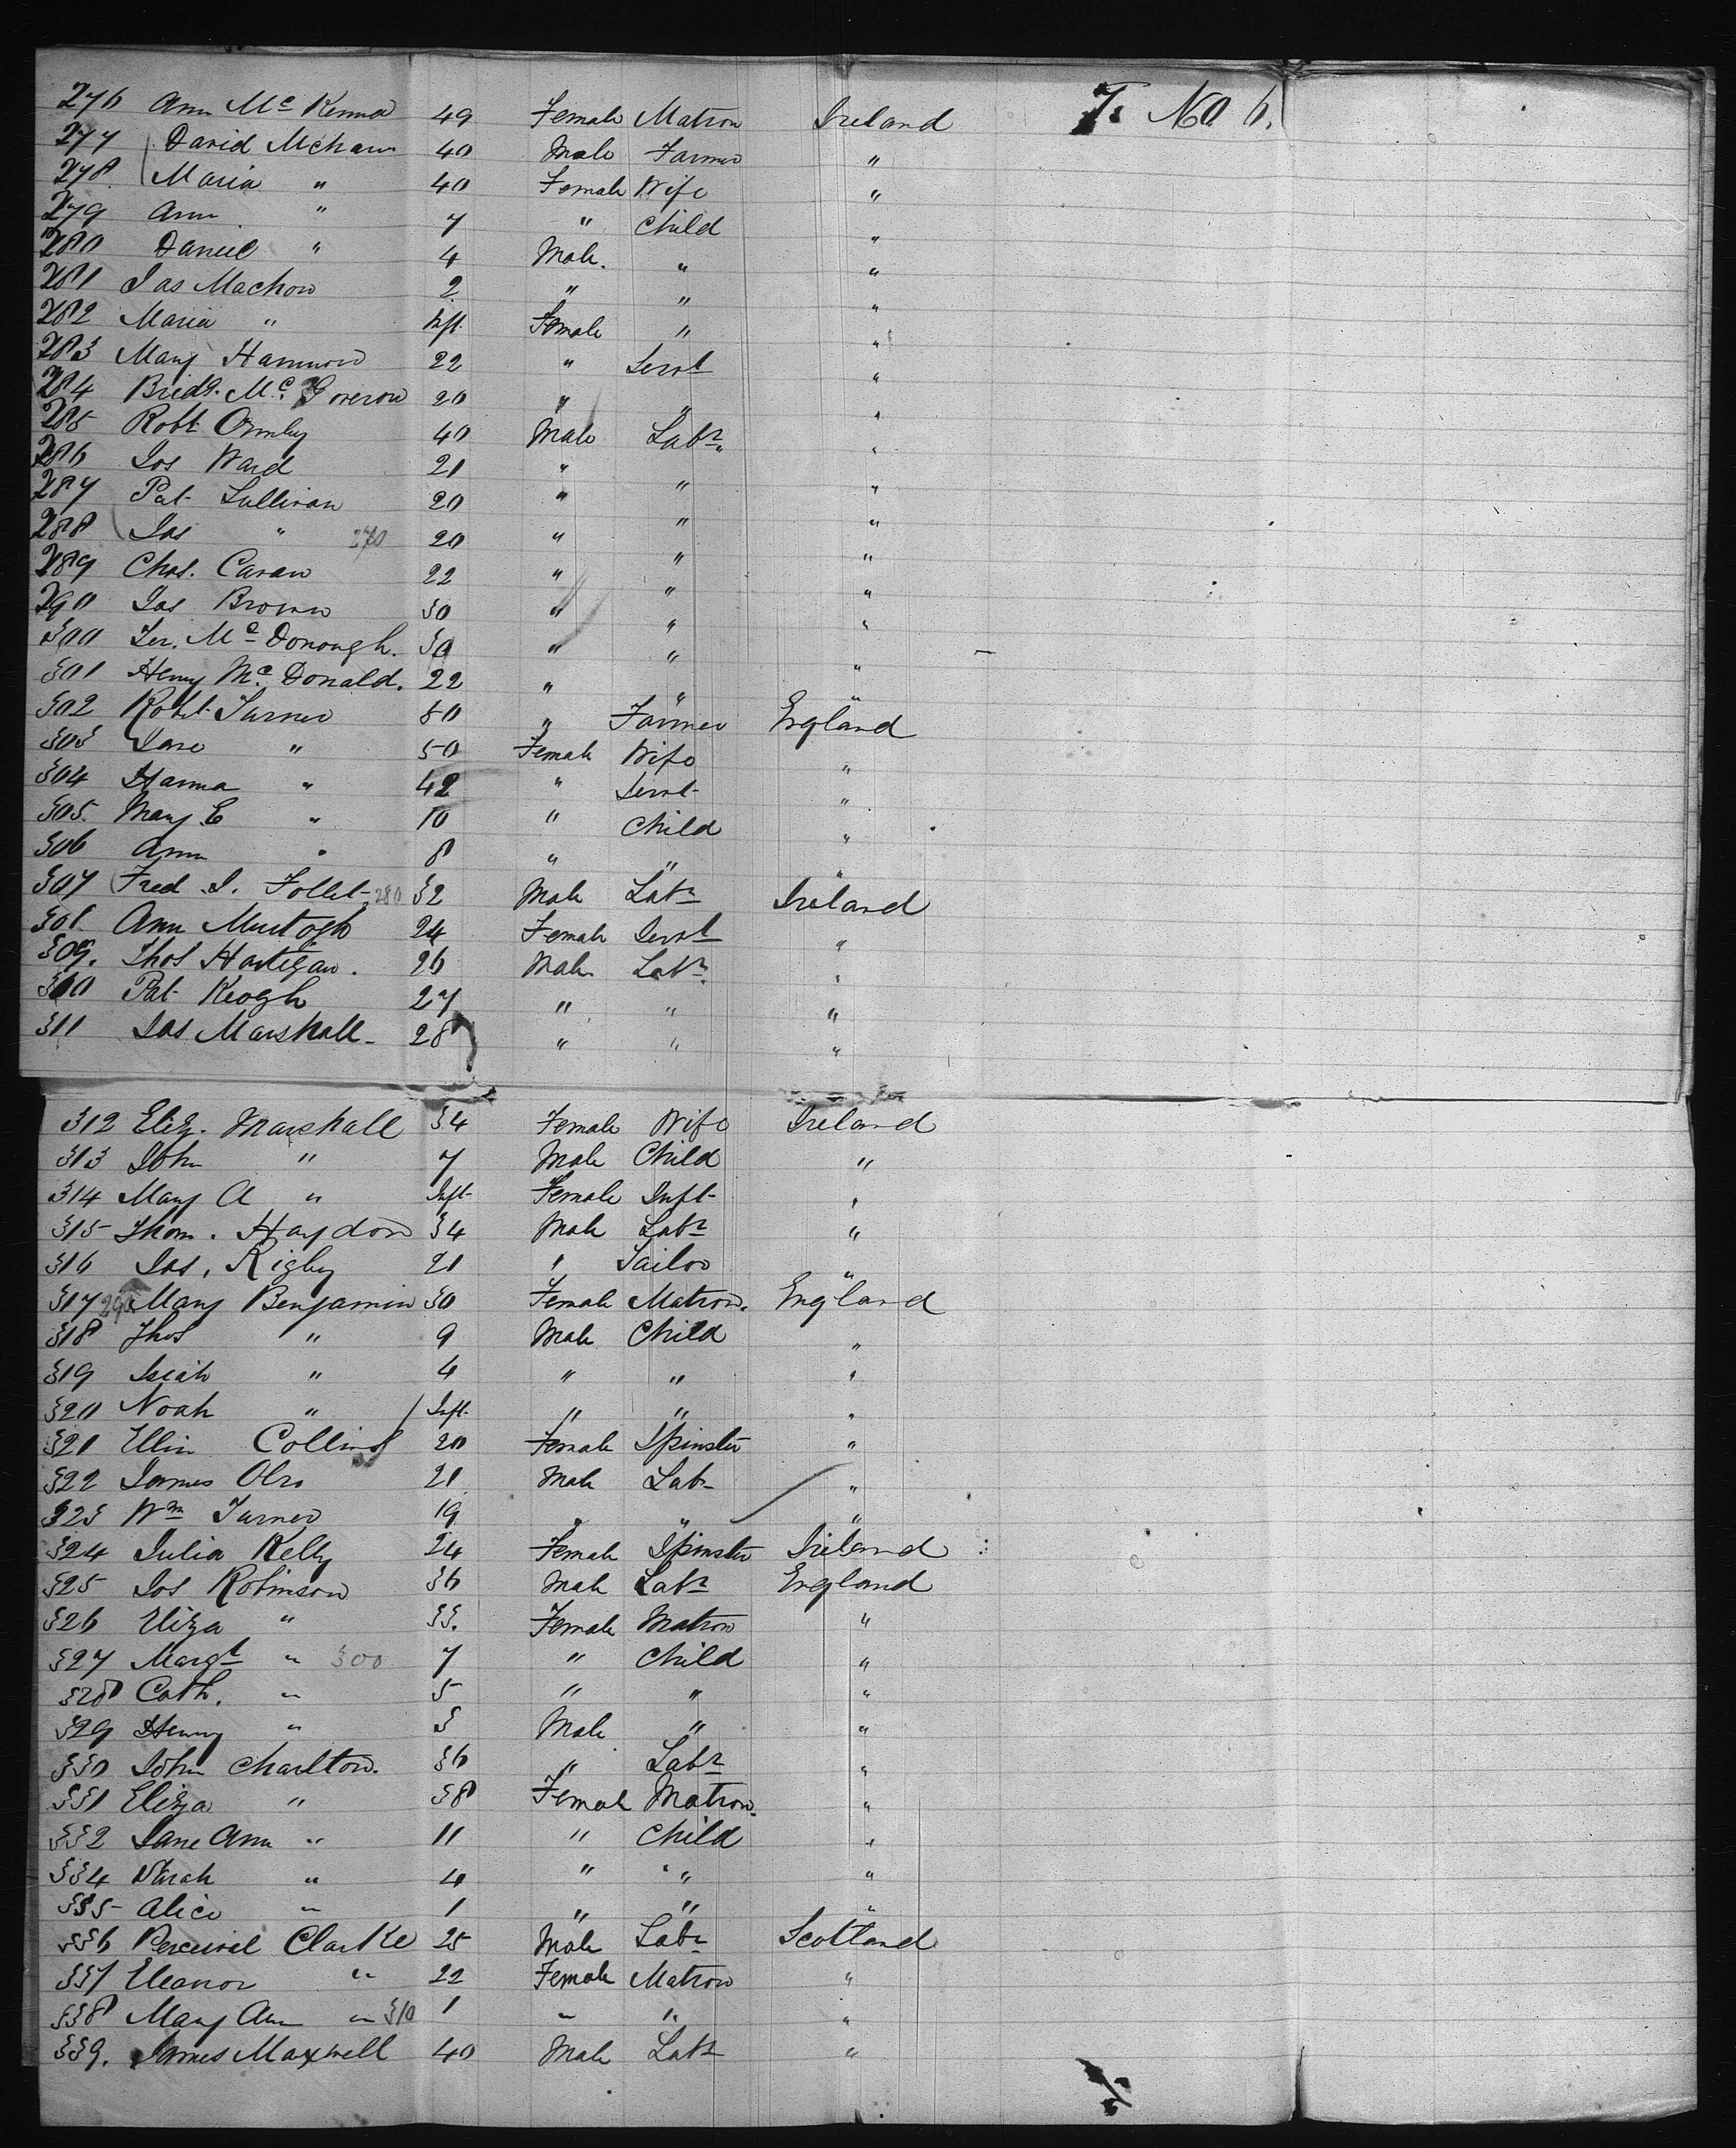 T. No 6.
276 Ann Mc Kenna 49 Female Matron Ireland
277 David Mchaw 40 Male Farmer "
278 Maria " 40 Female Wife "
279 Ann " 7 " Child "
280 Daniel " 4 Male. " "
281 Jas Machow 2 " " "
282 Maria " Inft. Female " "
283 Mary Hammon 22 " Servt "
284 Bredt. Mc. Goveron 20 " " "
285 Robt Ormby 40 Male Labr "
286 Jos Ward 21 " " "
287 Pat Sullivan 20 " " "
288 Jas " 270 20 " " "
289 Chas. Cavan 22 " " "
290 Jas Brown 30 " " "
300 Jer. Mc Donough. 30 " " "
301 Henry Mc. Donald. 22 " " "
302 Robt Turner 50 " Farmer England
303 Jane " 50 Female Wife "
304 Hanna " 42 " Servt "
305. Mary E " 10 " Child "
306 Ann " 8 " " "
307 Fred J. Follet 280 32 Male Labr Ireland
308. Ann Murtogh 24 Female Servt "
309. Thos Hartigan. 26 Male Labr. "
310 Pat Keogh 27 " " "
311 Jas Marshall 28 " " "
312 Eliz. Marshall 34 Female Wife Ireland
313 John " 7 Male Child "
314 Mary A " Inft Female Inft "
315 Thom. Haydon 34 Male Labr "
316 Jas. Rigby 21 " Tailor "
317 290 Mary Benjamin 30 Female Matron. England
318 Thos " 9 Male Child "
319 Isiah " 4 " " "
320 Noah " Inft. " " "
321 Ellin Collins 20 Female Spinster "
322 James Olro 21 Male Labr "
323 Wm Turner 19 " " "
324 Julia Kelly 24 Female Spinster Ireland
325 Jos Robinson 36 Male Labr England
326 Eliza " 33. Female Matron "
327 Margt " 300 7 " Child "
328 Cath. " 5 " " "
329 Henry " 3 Male " "
330 John Charlton. 36 " Labr "
331 Eliza " 38 Female Matron. "
332 Jane Ann " 11 " Child "
334 Sarah " 4 " " "
335 Alice " 1 " " "
336 Percival Clarke 25 Male Labr Scotland
337 Eleanor " 22 Female Matron "
338 Mary Ann " 310 1 " " "
339. James Maxwell 40 Male Labr "